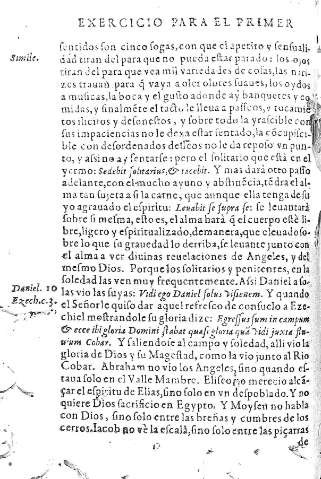 EXERCICIO PARA EL PRIMER
sentidos son cinco sogas, con que el apetito y sensuali
Simile.
dad tiran del para que no pueda estar parado: los ojos
tiran del para que vea mil variedades de cosas, las nari
zes tirauan para q̃ vaya a oler olores suaues, los oydos
a musicas, la boca y el gusto adonde ay banquetes y co
midas, y finalmẽte el tacto le lleua a passeos, y tocamiẽ
tos ilicitos y desonestos, y sobre todo la yrascible con
sus impaciencias no le dexa estar sentado, la cõcupisci
ble con desordenados desseos no le da reposo vn pun
to, y assi no ay sentarse: pero el solitario que està en el
yermo: Sedebit solitarius, & tacebit. Y mas darà otro passo
adelante, con el mucho ayuno y abstinẽcia, tẽdra el al-
ma tan sujeta a si la carne, que aunque ella tenga de su
yo agrauado el espiritu: Leuabit se supra se: se leuantarà
sobre si mesma, esto es, el alma harà q̃ el cuerpo estè li
bre, ligero y espiritualizado, demanera, que eleuado so
bre lo que su grauedad lo derriba, se leuante junto con
el alma a ver diuinas reuelaciones de Angeles, y del
mesmo Dios. Porque los solitarios y penitentes, en la
soledad las ven muy frequentemente. Assi Daniel a so
Daniel. 10
las vio las suyas: Vidi ego Daniel solus visionem. Y quando
Ezech. c. 3.
el Señor le quiso dar aquel refresco de consuelo a Eze
chiel mostrandole su gloria dize: Egressus sum in campum
& ecce ibi gloria Domini stabat quasi gloria quã vidi juxta flu-
uium Cobar. Y saliendose al campo y soledad, alli vio la
gloria de Dios y su Magestad, como la vio junto al Rio
Cobar. Abraham no vio los Angeles, sino quando es-
taua solo en el Valle Mambre. Eliseo no merecio alcan-
çar el espiritu de Elias, sino solo en vn despoblado. Y no
quiere Dios sacrificio en Egypto. Y Moysen no habla
con Dios, sino solo entre las breñas y cumbres de los
cerros. Iacob no vè la escalã, sino solo entre las piçarras
de